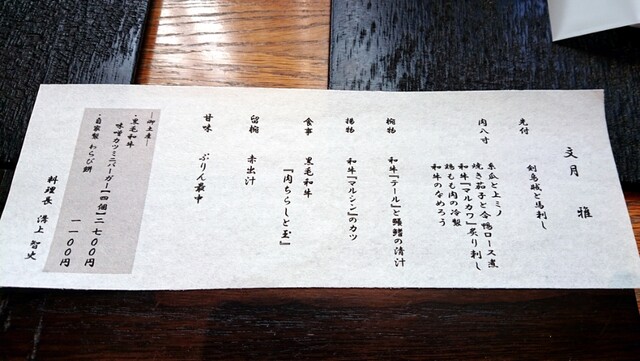 文月 雅
先付
剣烏賊と馬刺し
肉八寸
糸瓜と上ミノ
焼き茄子と合鴨ロース煮
和牛『マルカワ』炙り刺し
鶏もも肉の冷製
和牛のなめろう
椀物 和牛『テール』と鱧の清汁
揚物 和牛『マルシン』のカツ
食事 黒毛和牛
『肉ちらしと玉』
留椀 赤出汁
甘味 ぷりん最中
―御土産―
・黒毛和牛
味噌カツミニバーガー【四個】二七〇〇円
・自家製 わらび餅 一一〇〇円
料理長 溝上 智史